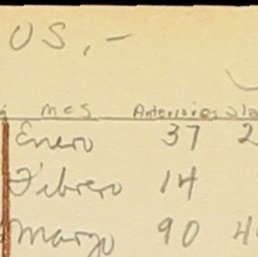 OS,-
mes Anteriores
Enero 37 2
Febrero 14
Marzo 90 4